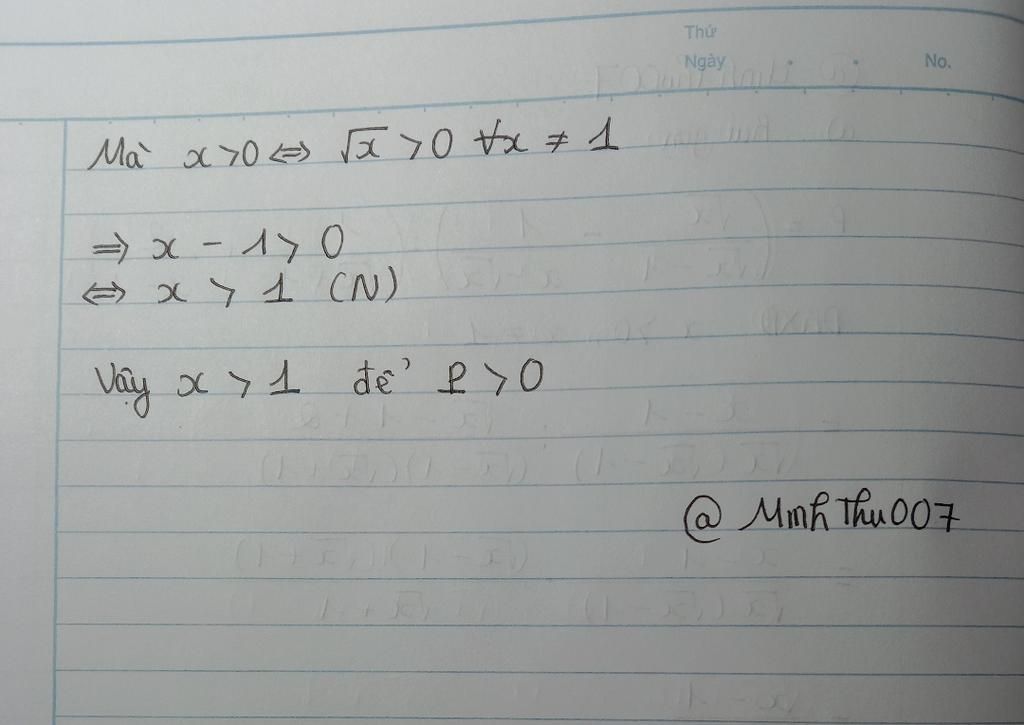 Thứ
Ngày . . No.
Mà x > 0 ⇔ √x > 0 ∀x ≠ 1
⇒ x - 1 > 0
⇔ x > 1 (N)
Vậy x > 1 để P > 0
@ MinhThu007